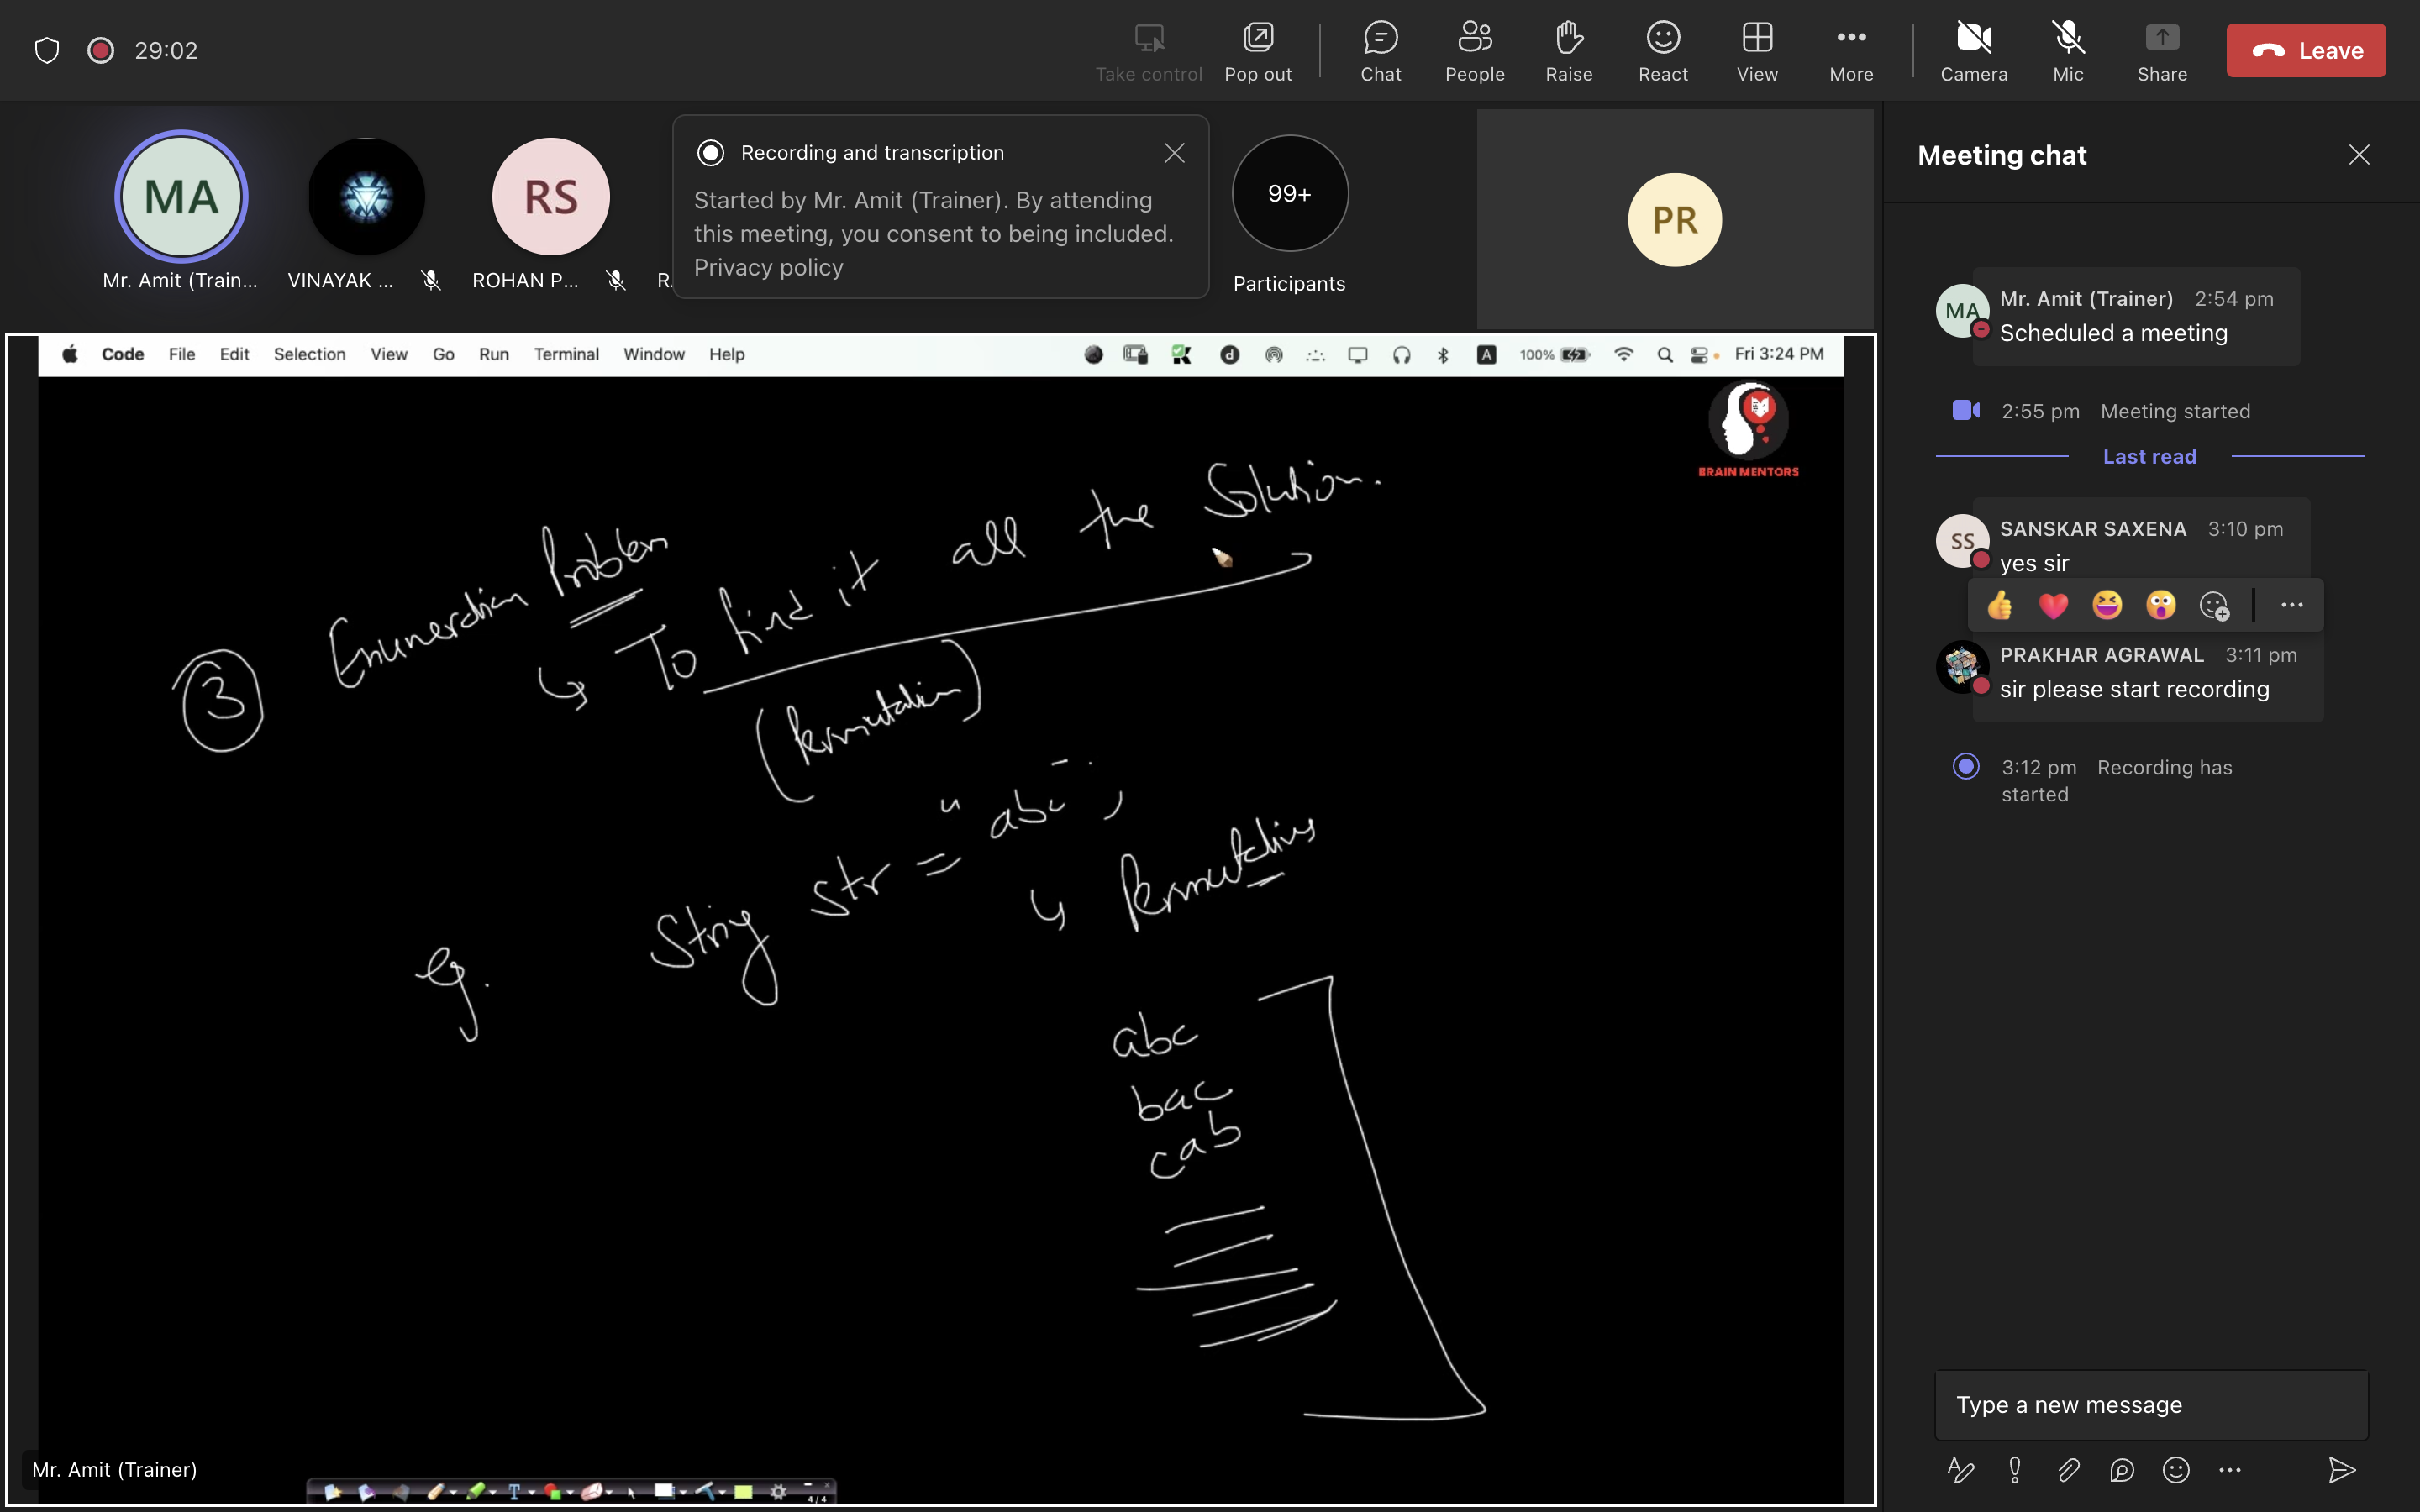 29:02
Take control Pop out Chat People Raise React View More Camera Mic Share Leave
MA RS
Mr. Amit (Train... VINAYAK ... ROHAN P... R
Recording and transcription
Started by Mr. Amit (Trainer). By attending
this meeting, you consent to being included.
Privacy policy
99+
Participants
PR
Code File Edit Selection View Go Run Terminal Window Help
d A 100% Fri 3:24 PM
BRAIN MENTORS
3 Enumeration Problem
↳ To find it all the Solution.
(Permutation)
eg. String str = "abc";
↳ Permutations
abc
bac
cab
Mr. Amit (Trainer)
T 4/4
Meeting chat
MA Mr. Amit (Trainer) 2:54 pm
Scheduled a meeting
2:55 pm Meeting started
Last read
SS SANSKAR SAXENA 3:10 pm
yes sir
PRAKHAR AGRAWAL 3:11 pm
sir please start recording
3:12 pm Recording has
started
Type a new message